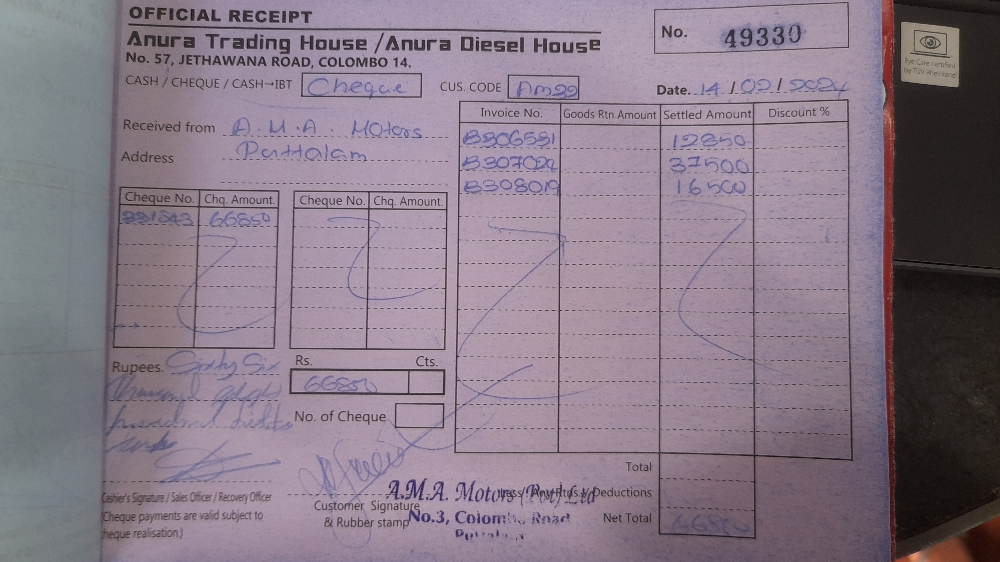 OFFICIAL RECEIPT
No. 49330
Anura Trading House / Anura Diesel House
No. 57, JETHAWANA ROAD, COLOMBO 14.
CASH / CHEQUE / CASH→IBT Cheque CUS. CODE Date. 14/02/2024
Received from A.M.A. Motors
Address Puttalam
Invoice No. Goods Rtn Amount Settled Amount Discount %
B306531 12850
37500
B308019 16500
Cheque No. Chq. Amount. Cheque No. Chq. Amount.
66850
Rupees. Sixty Six
Rs. Cts.
66850
No. of Cheque
Total
Less / Any Rtds / Deductions
Net Total 66850
Cashier's Signature / Sales Officer / Recovery Officer
(Cheque payments are valid subject to
cheque realisation.)
Customer Signature
& Rubber stamp
A.M.A. Motors (Pvt) Ltd
No.3, Colombo Road
Eye Care certified
by TÜV Rheinland